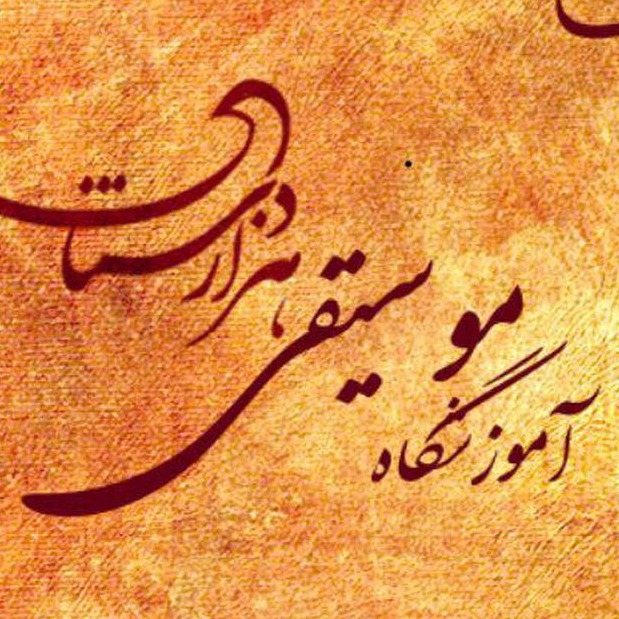 آموزشگاه
موسیقی
هزاردستان